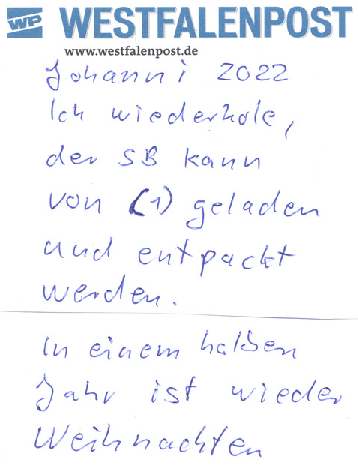 WP WESTFALENPOST
www.westfalenpost.de
Johanni 2022
Ich wiederhole,
der SB kann
von (1) geladen
und entpackt
werden.
In einem halben
Jahr ist wieder
Weihnachten